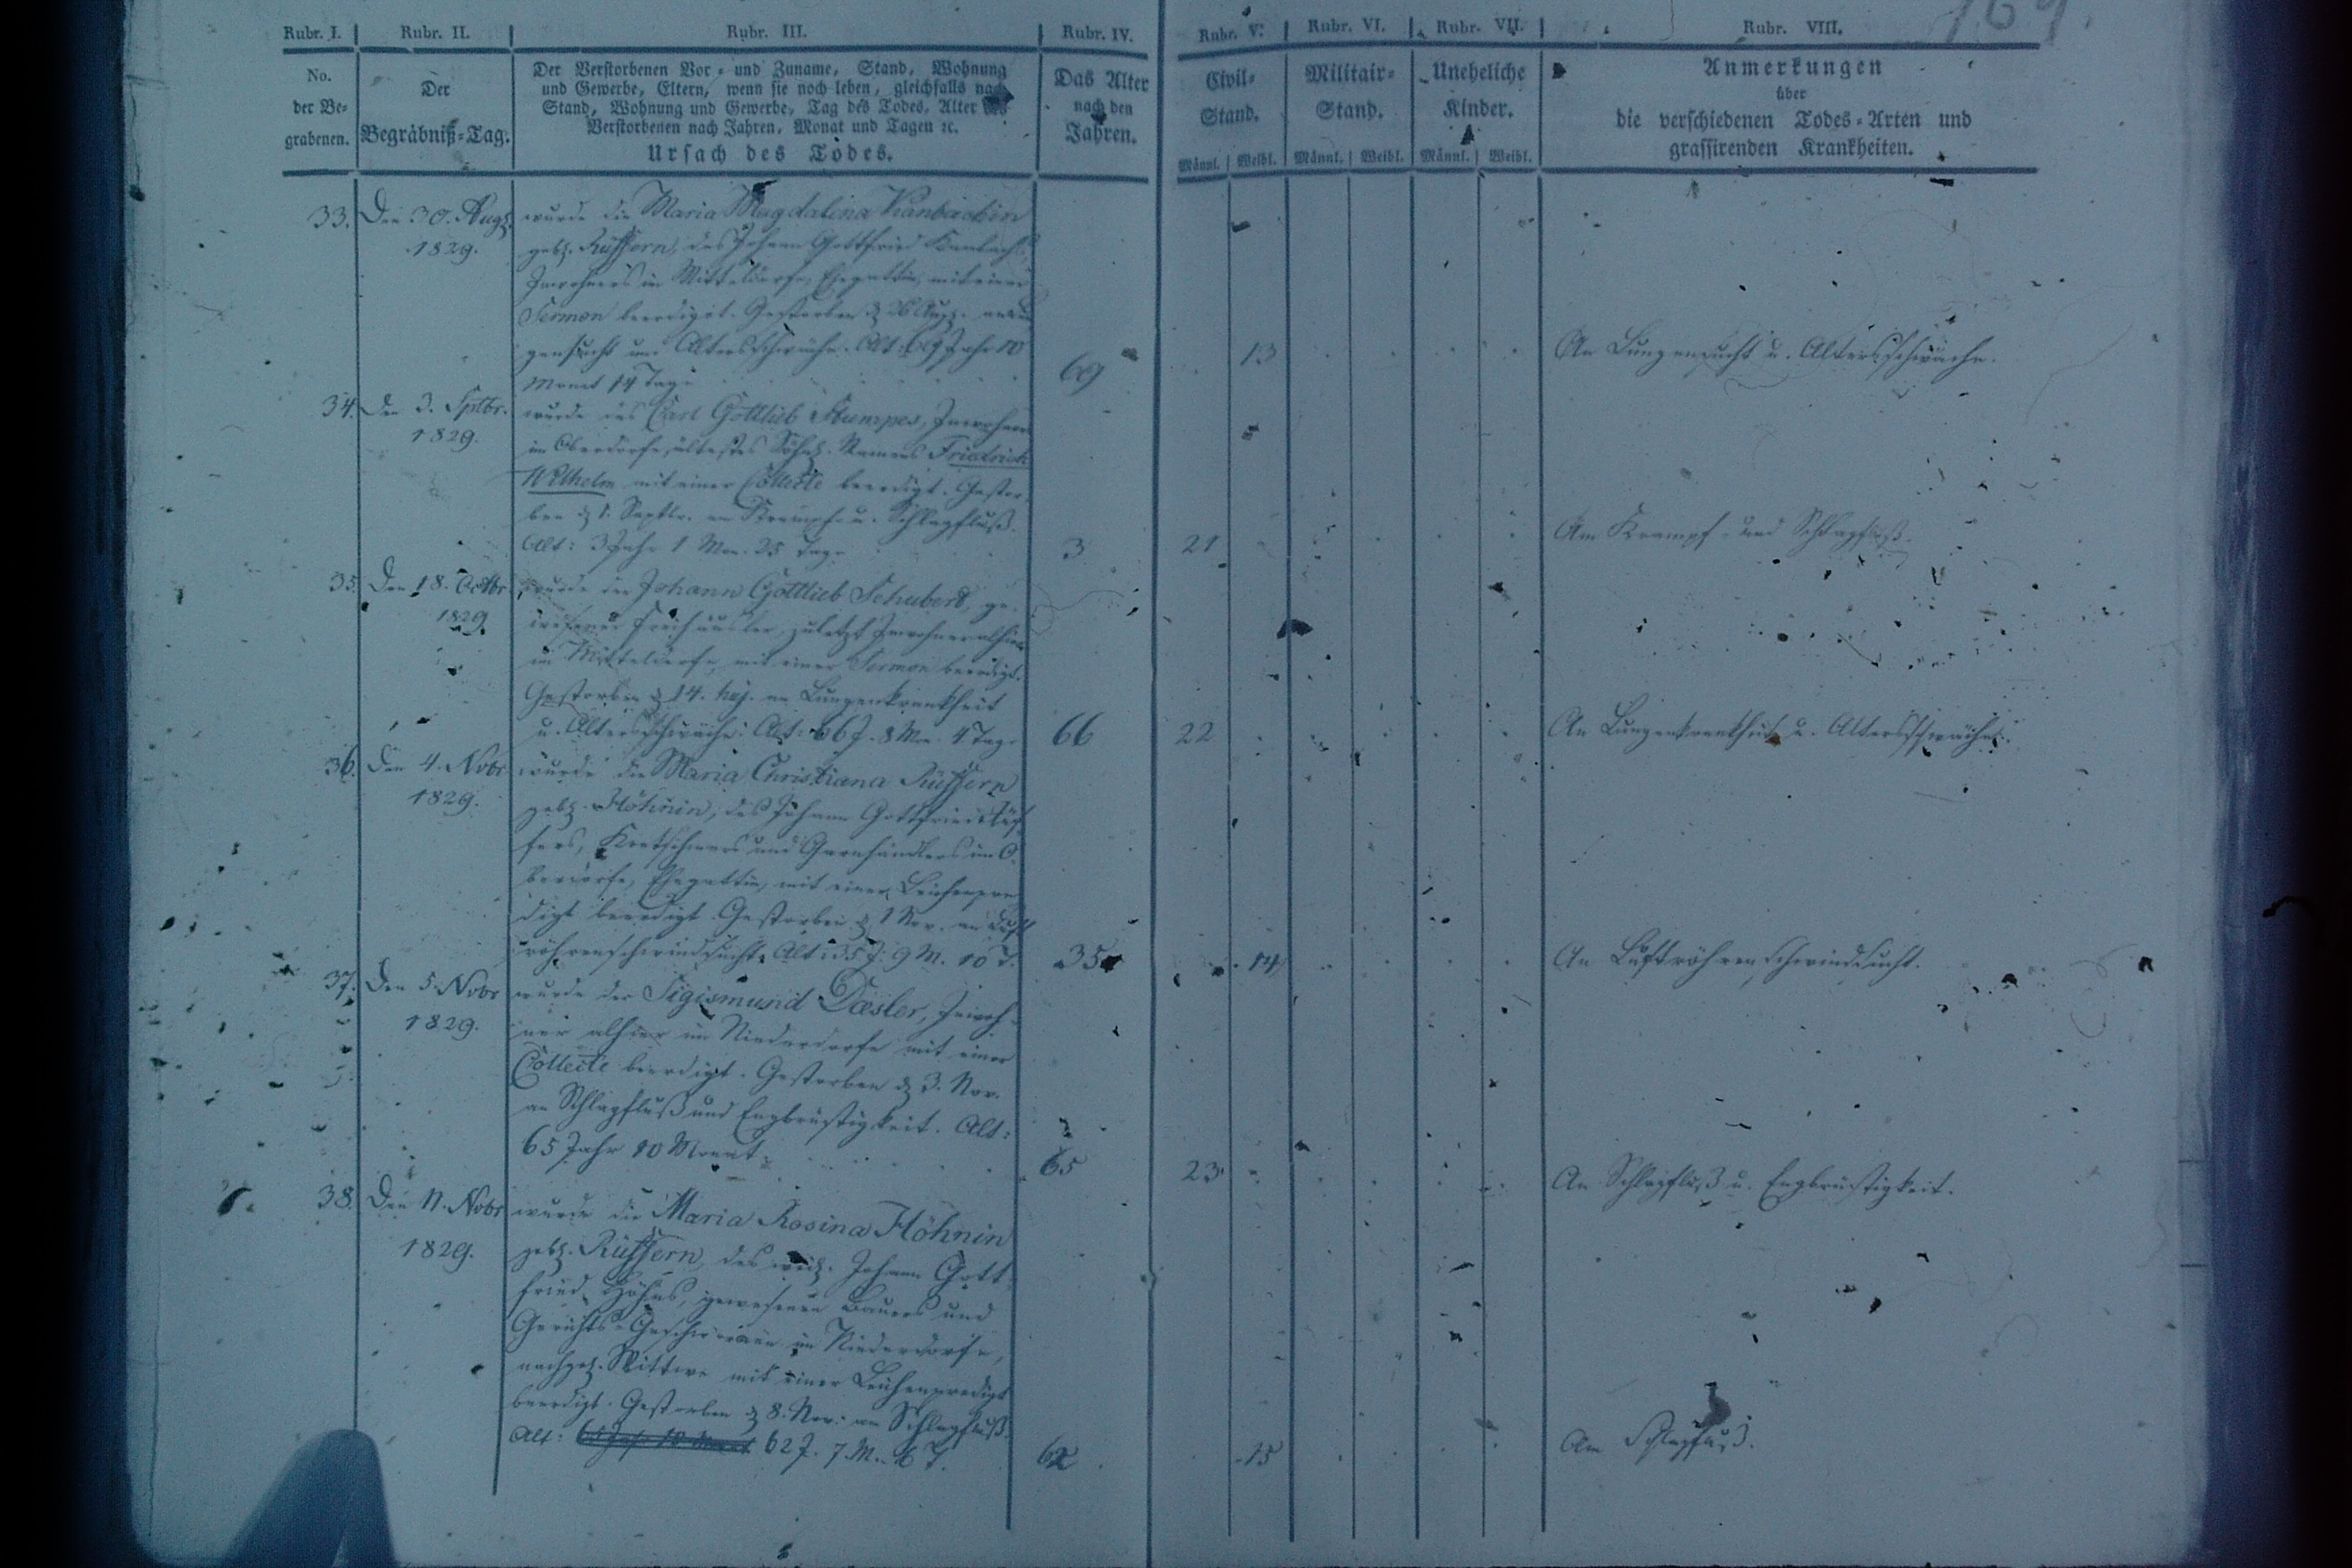 Rubr. I. Rubr. II. Rubr. III. Rubr. IV. Rubr. V. Rubr. VI. Rubr. VII. Rubr. VIII.
No. der Be- grabenen.
Der Begräbniß-Tag.
Der Verstorbenen Vor- und Zuname, Stand, Wohnung
und Gewerbe, Eltern, wenn sie noch leben, gleichfalls nach
Stand, Wohnung und Gewerbe, Tag des Todes, Alter des
Verstorbenen nach Jahren, Monat und Tagen ꝛc.
Ursach des Todes.
Das Alter
nach den
Jahren.
Civil-
Stand.
Männl. Weibl.
Militair-
Stand.
Männl. Weibl.
Uneheliche
Kinder.
Männl. Weibl.
Anmerkungen
über
die verschiedenen Todes-Arten und
grassirenden Krankheiten.
33. Den 30. Aug.
1829.
wurde die Maria Magdalena
geb. Rüffern, des Johann Gottfried
Inwohners in Mitteldorfe, Ehegattin, mit einer
Sermon beerdiget. Gestorben d 26 Aug. an Lun
gensucht und Altersschwäche. Alt: 69 Jahr 10
Monat 14 Tage
69 13 An Lungensucht u. Altersschwäche.
34. Den 3. Sptbr.
1829.
wurde des Carl Gottlieb Stumpes, Inwohners
im Oberdorfe, ältestes Söhnl. Namens Friedrich
Wilhelm mit einer Collecte beerdigt. Gestor-
ben d 1. Septbr. am Krampf- u. Schlagfluß.
Alt: 3 Jahr 1 Mon. 25 Tage
3 21 Am Krampf- und Schlagfluß.
35. Den 18. Octbr
1829
wurde der Johann Gottlieb Schubert, ge-
wesener Freihäusler, zuletzt Inwohner alhier
im Mitteldorfe, mit einer Sermon beerdigt.
Gestorben d 14. huj. an Lungenkrankheit
u. Altersschwäche. Alt: 66 J. 8 Mon. 4 Tage
66 22 An Lungenkrankheit u. Altersschwäche.
36. Den 4. Nobr
1829.
wurde die Maria Christiana Rüffern
geb. Höhnin, des Johann Gottfried Rüf-
fers, Kretschmers und Garnhändlers im O-
berdorfe, Ehegattin, mit einer Leichenpre
digt beerdigt. Gestorben d 1 Nov. an Luft
röhrenschwindsucht. Alt: 35 J. 9 M. 10 T.
35 14 An Luftröhrenschwindsucht.
37. Den 5. Nobr
1829.
wurde der Sigismund Dæsler, Inwoh-
ner alhier im Niederdorfe mit einer
Collecte beerdigt. Gestorben d 3. Nov.
an Schlagfluß und Engbrüstigkeit. Alt:
65 Jahr 10 Monat.
65 23 An Schlagfluß u. Engbrüstigkeit.
38. Den 11. Nobr
1829.
wurde die Maria Rosina Höhnin
geb. Rüffern, des weil. Johann Gott
fried Höhns, gewesenen Bauers und
Gerichts-Geschworenen im Niederdorfe,
nachgel. Wittwe mit einer Leichenpredigt
beerdigt. Gestorben d 8. Nov. an Schlagfluß.
Alt: 65 Jahr 10 Monat 62 J. 7 M. 6 T.
62 15 Am Schlagfluß.